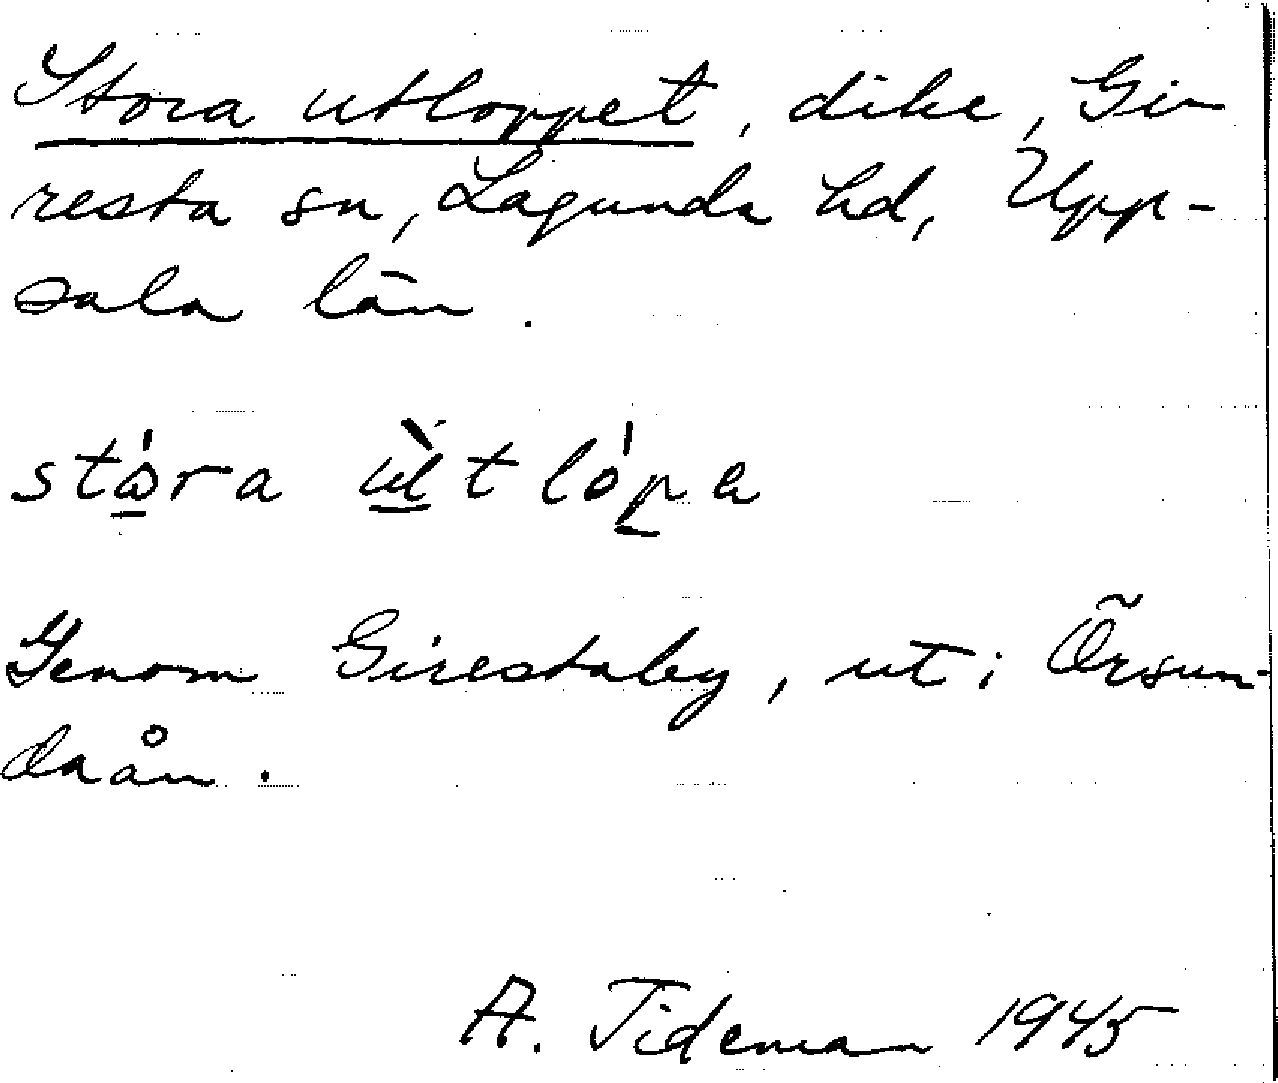 Stora utloppet, dike, Gi-
resta sn, Lagunda hd, Upp-
sala län.
stɷ́ra ùtlópe
Genom Girestaby, ut i Örsun-
daån.
A. Tideman 1945